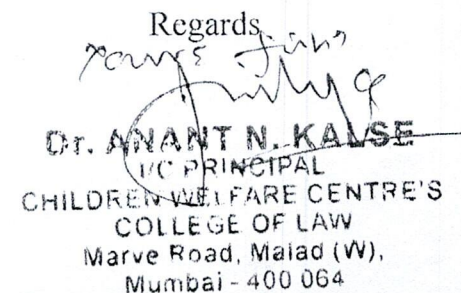 Regards
Yours
Dr. ANANT N. KALSE
I/C PRINCIPAL
CHILDREN WELFARE CENTRE'S
COLLEGE OF LAW
Marve Road, Malad (W),
Mumbai - 400 064